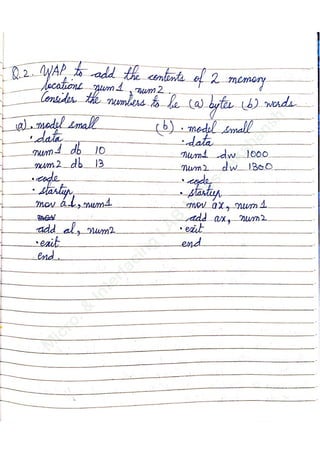 Q.2. WAP to add the contents of 2 memory
locations num1, num2.
Consider the numbers to be (a) bytes (b) words
(a) .model small
.data
num1 db 10
num2 db 13
.code
.startup
mov al, num1
add al, num2
.exit
end.
(b) .model small
.data
num1 dw 1000
num2 dw 1300
.code
.startup
mov ax, num1
add ax, num2
.exit
end
Micro & Interfacing LAB